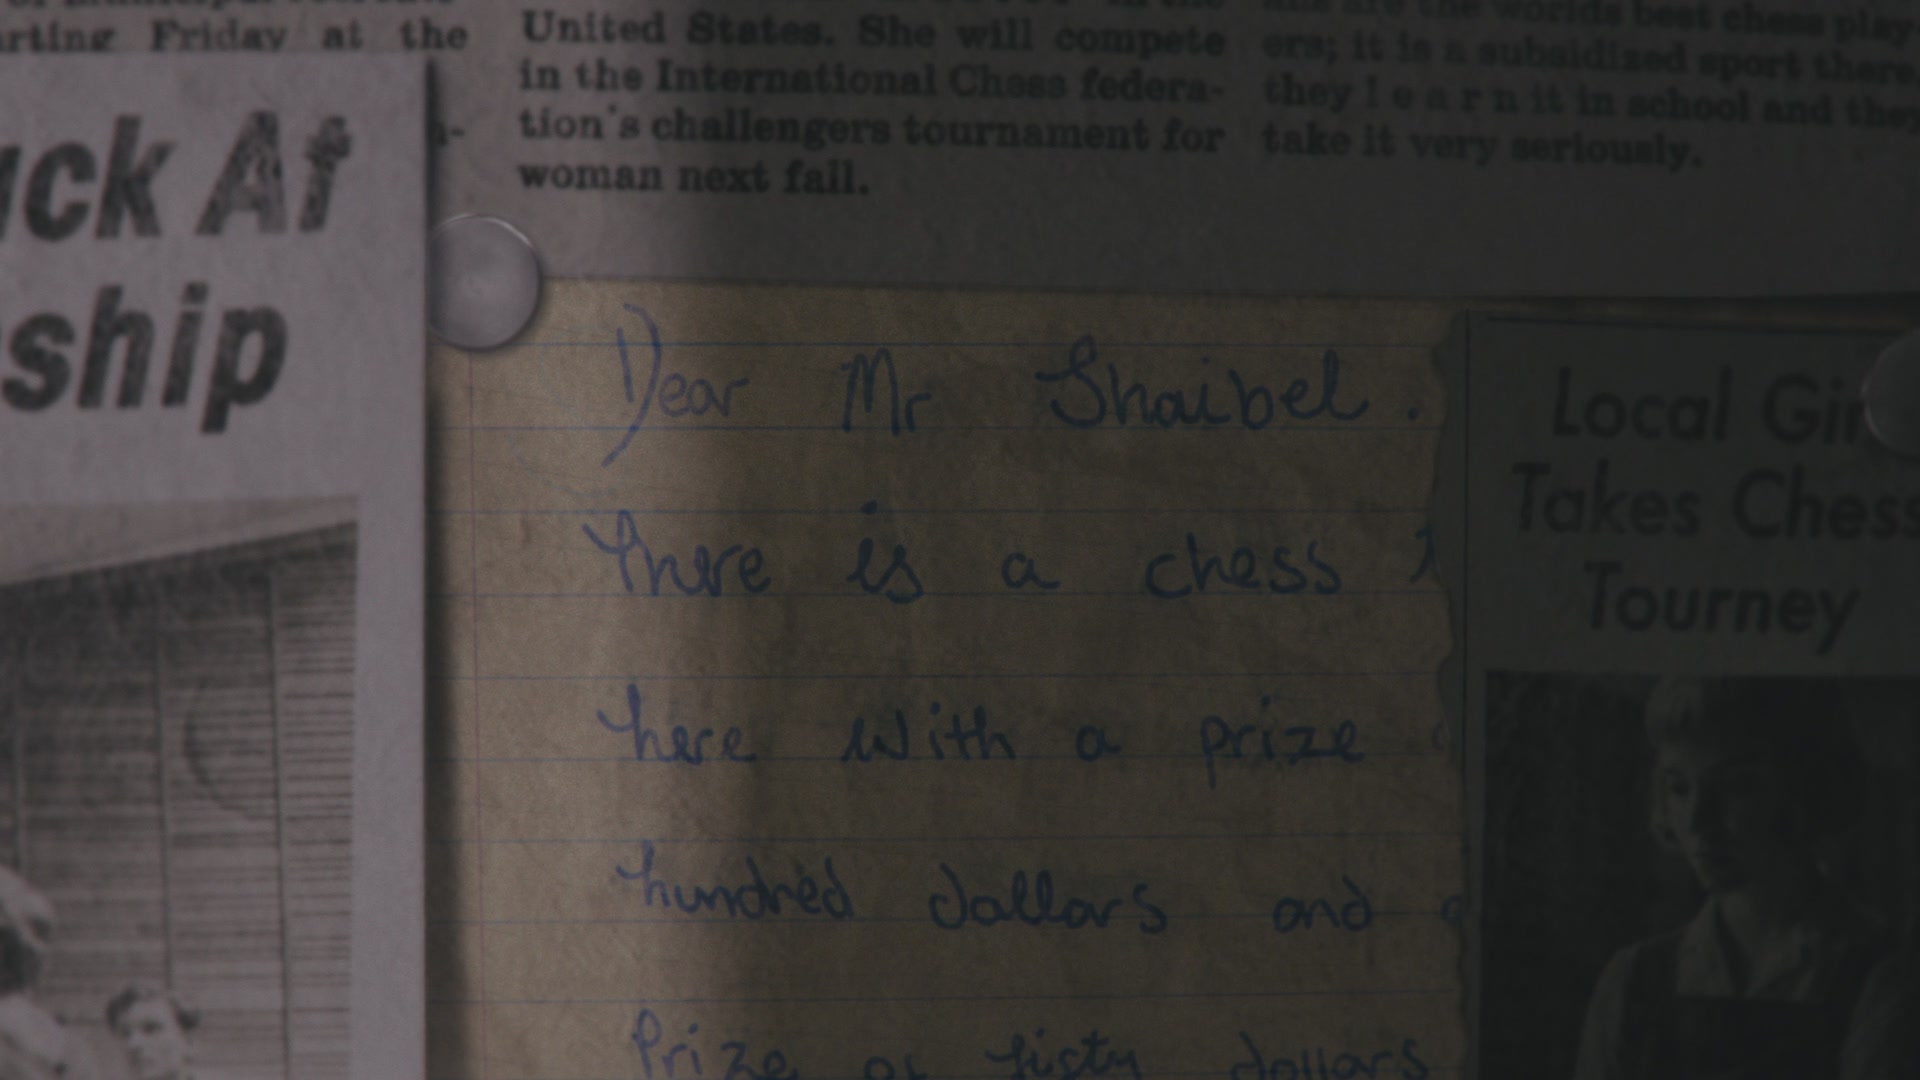 Friday at the
United States. She will compete
in the International Chess federa-
tion's challengers tournament for
woman next fall.
are the worlds best chess play-
ers; it is a subsidized sport there,
they learn it in school and they
take it very seriously.
At
ship
Dear Mr Shaibel.
There is a chess
here with a prize
hundred dollars and
Prize of fifty dollars
Local Gir
Takes Chess
Tourney